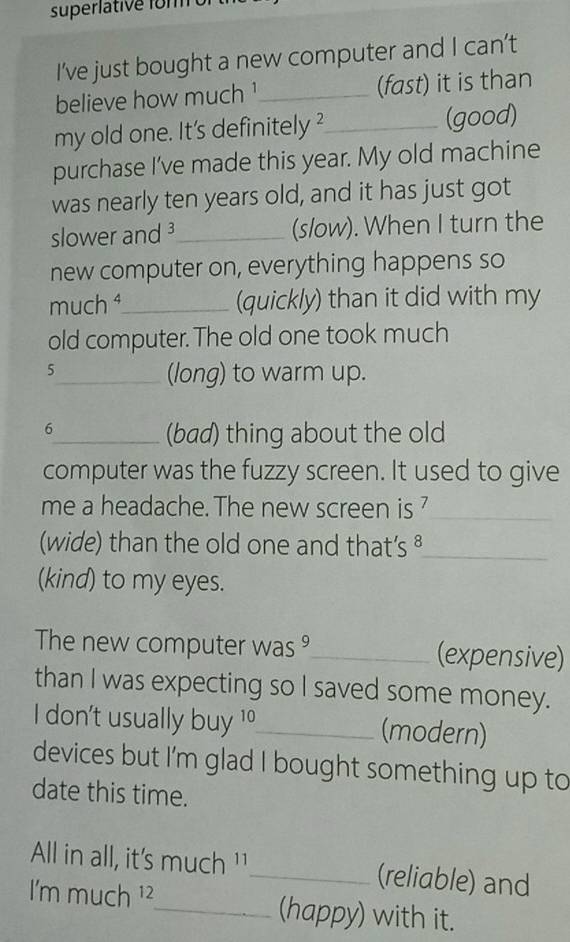 superlative form
I've just bought a new computer and I can't
believe how much ¹_________ (fast) it is than
my old one. It's definitely ²_________ (good)
purchase I've made this year. My old machine
was nearly ten years old, and it has just got
slower and ³_________ (slow). When I turn the
new computer on, everything happens so
much ⁴_________ (quickly) than it did with my
old computer. The old one took much
⁵_________ (long) to warm up.
⁶_________ (bad) thing about the old
computer was the fuzzy screen. It used to give
me a headache. The new screen is ⁷_________
(wide) than the old one and that's ⁸_________
(kind) to my eyes.
The new computer was ⁹_________ (expensive)
than I was expecting so I saved some money.
I don't usually buy ¹⁰_________ (modern)
devices but I'm glad I bought something up to
date this time.
All in all, it's much ¹¹_________ (reliable) and
I'm much ¹²_________ (happy) with it.